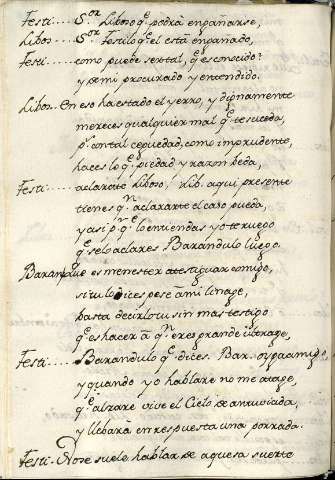 Festi..... S.or Liboso q.e podra engañarse,
Libos.... S.or Festilo q.e el está engañado,
Festi..... como puede ser tal, q.e es conocido?
y de mi procurado y entendido.
Libos. En eso ha estado el yerro, y dignamente
mereces qualquier mal q.e te suceda,
p.s con tal ceguedad, como imprudente,
haces lo q.e piedad y razon beda,
Festi..... aclarate Liboso, Lib. aqui presente
tienes q.n aclararte el caso pueda,
y asi p.r q.e lo entiendas yo te ruego
q.e se lo aclares Barándulo luego.
Baran que es menester atestiguar comigo,
si tu lo dices pese à mi linage,
basta decirlo tu sin mas testigo
q.e es hacer à q.n eres grande ultrage,
Festi..... Barandulo q.e dices. Bar. oyga amigo,
y quando yo hablare no me atage,
q.e alzare vive el Cielo
y llebará en respuesta una porrada.
Festi. No se suele hablar de aquesa suerte